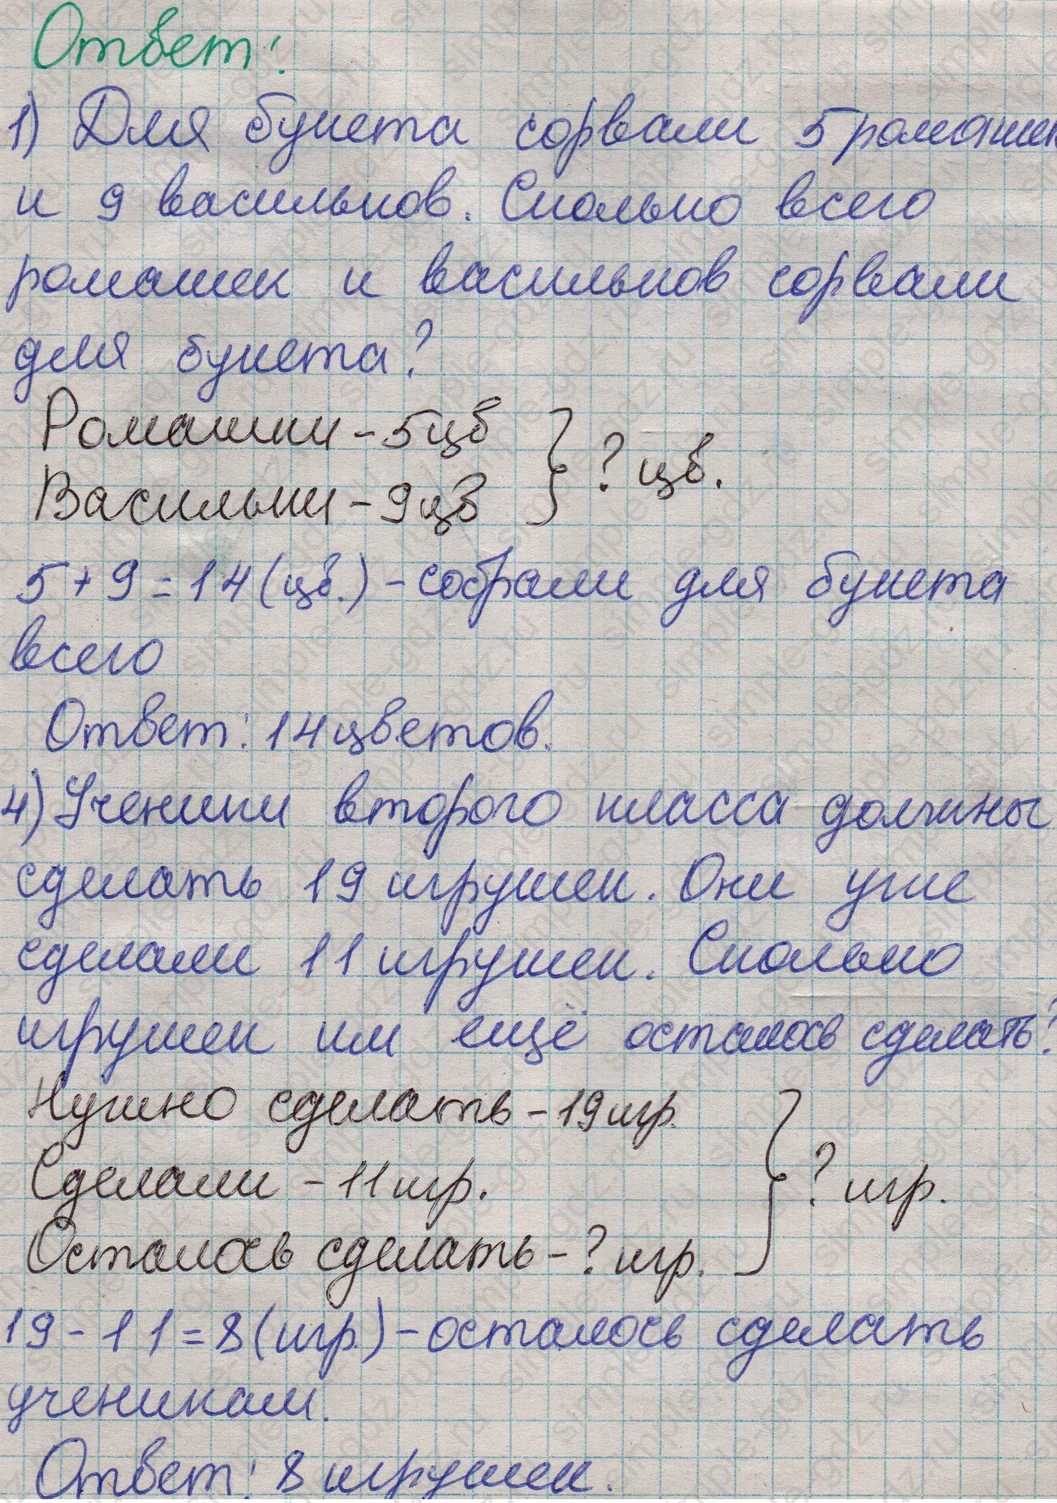 Ответ:
1) Для букета сорвали 5 ромашек
и 9 васильков. Сколько всего
ромашек и васильков сорвали
для букета?
Ромашки - 5 цв
Васильки - 9 цв } ? цв.
5 + 9 = 14 (цв.) - собрали для букета
всего
Ответ: 14 цветов.
4) Ученики второго класса должны
сделать 19 игрушек. Они уже
сделали 11 игрушек. Сколько
игрушек им ещё осталось сделать?
Нужно сделать - 19 игр.
Сделали - 11 игр. } ? игр.
Осталось сделать - ? игр.
19 - 11 = 8 (игр.) - осталось сделать
ученикам.
Ответ: 8 игрушек.